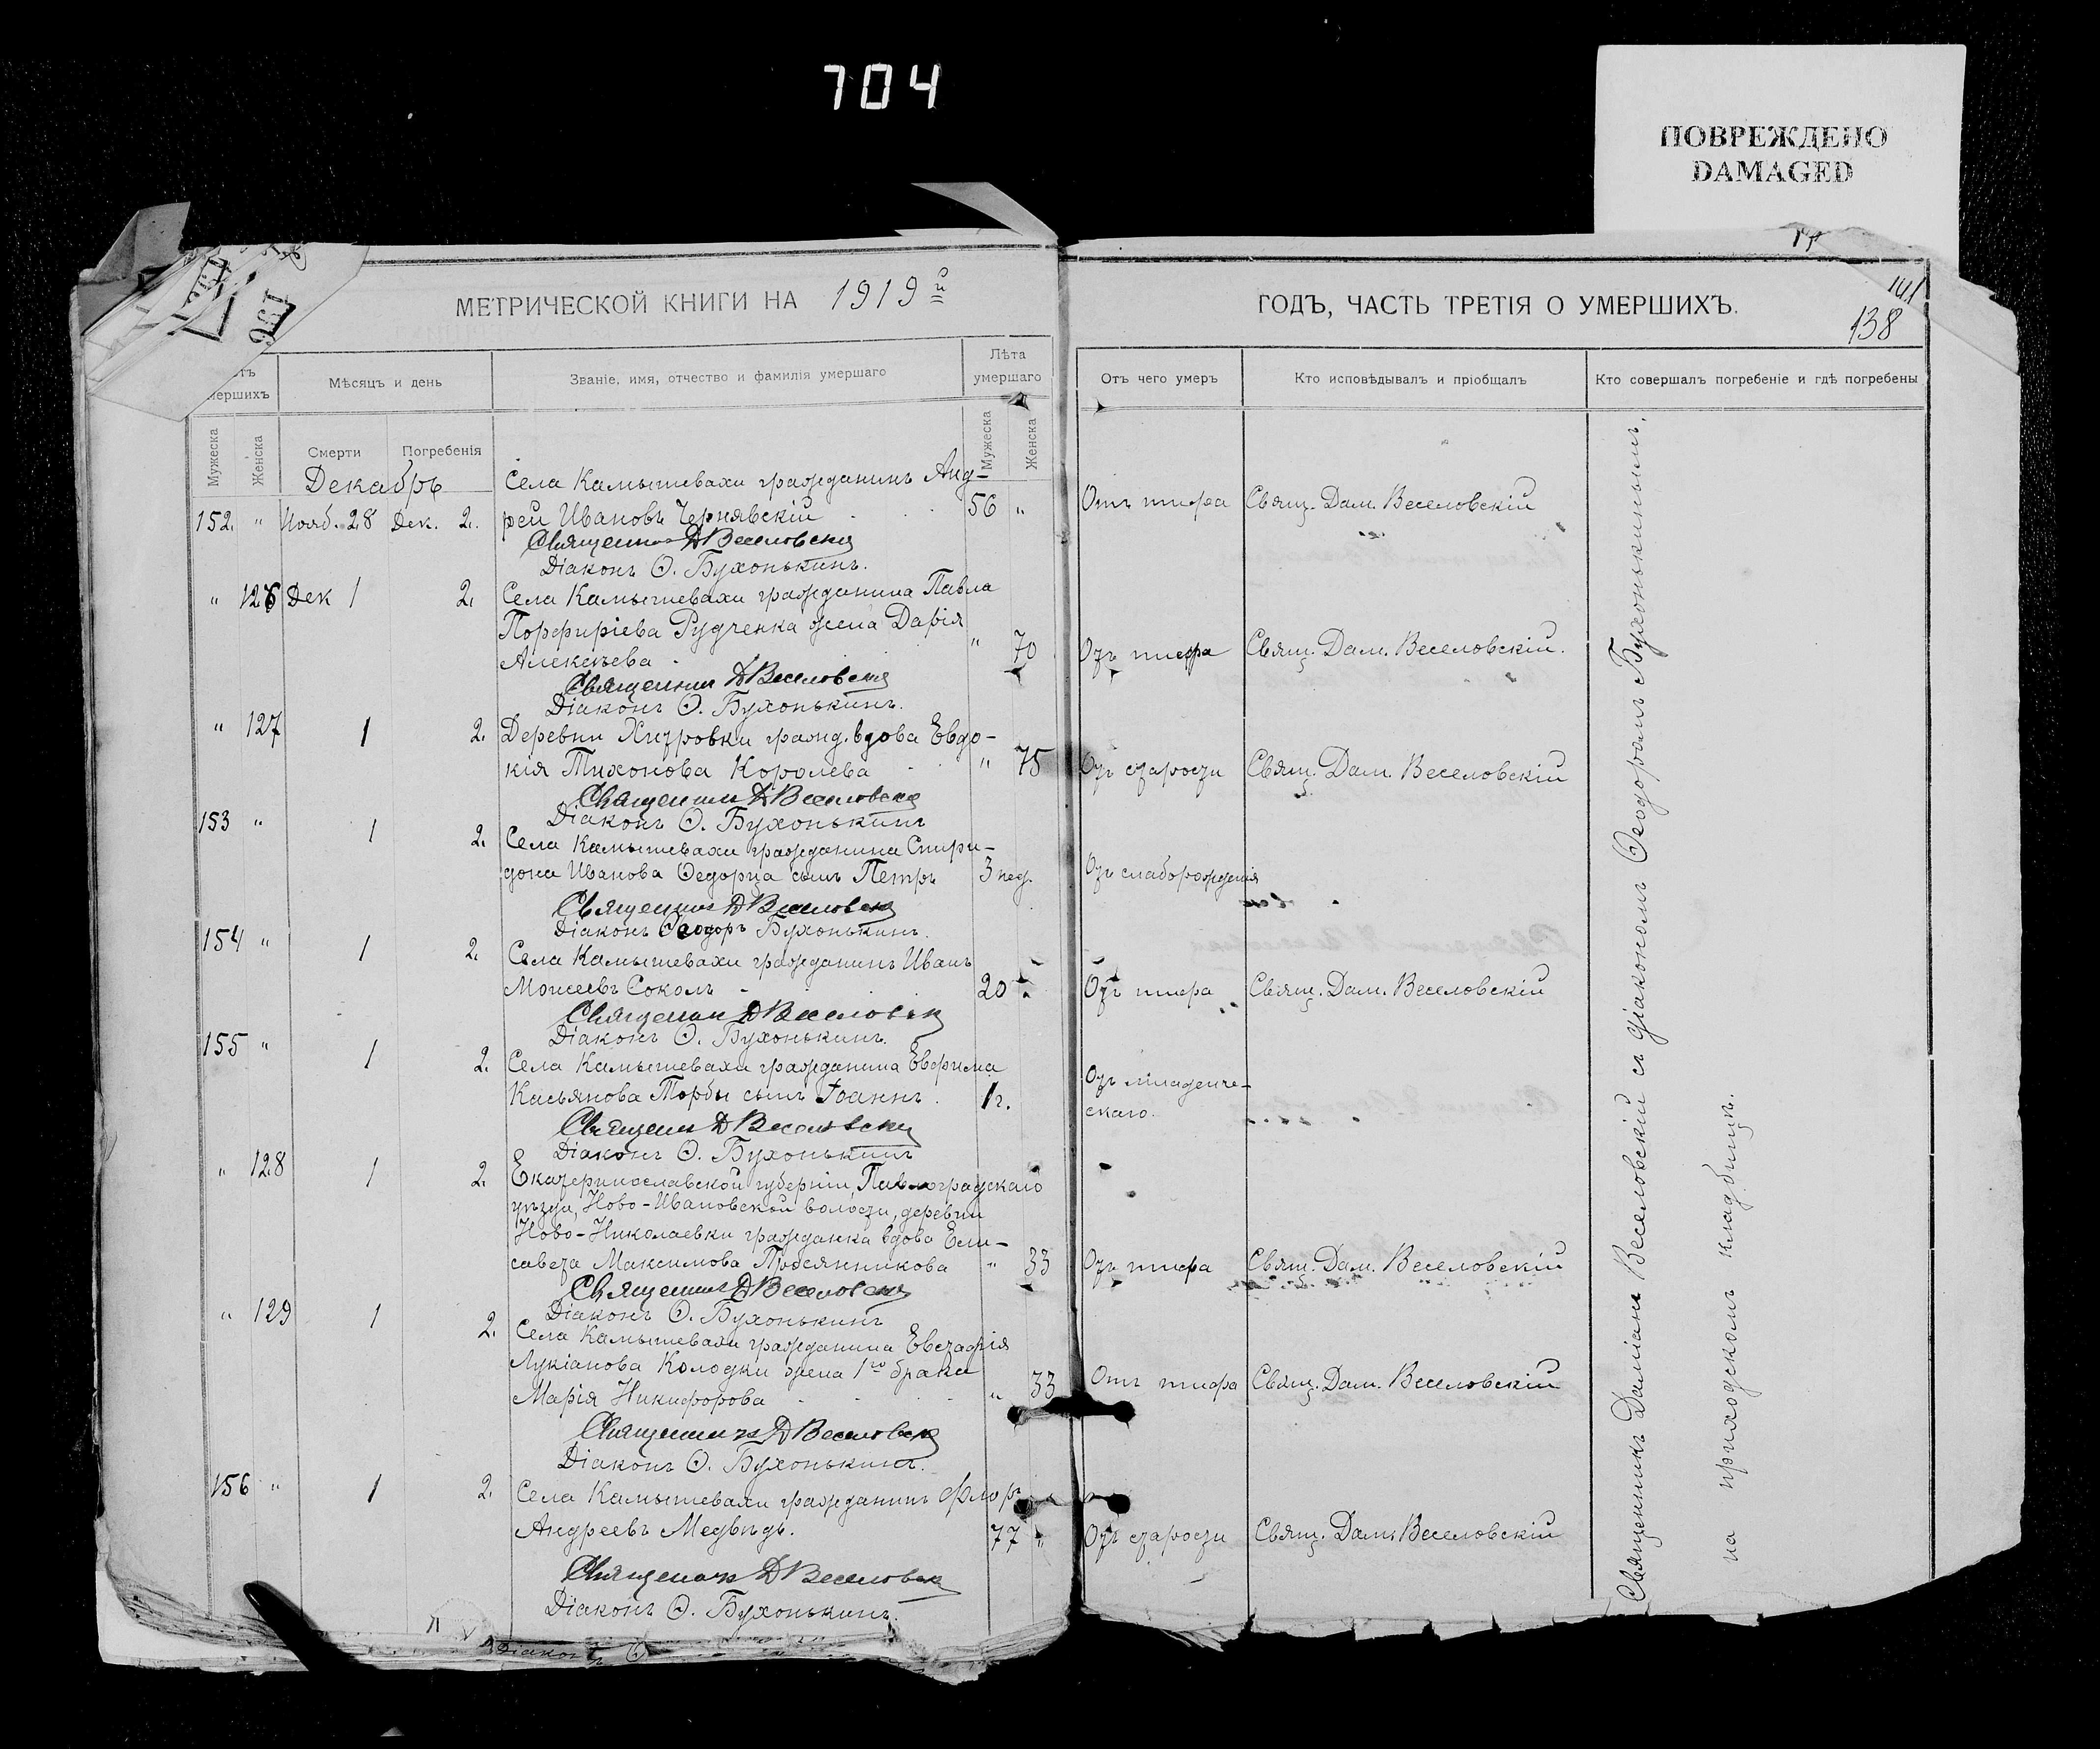 704
ПОВРЕЖДЕНО
DAMAGED
МЕТРИЧЕСКОЙ КНИГИ НА 1919й
мершихъ
Мѣсяцъ и день
Званіе, имя, отчество и фамилія умершаго
Лѣта
умершаго
Мужеска
Женска
Смерти
Погребенія
Мужеска
Женска
Декабрь
Села Камышевахи гражданинъ Анд-
152. " Нояб. 28 Дек. 2. рей Ивановъ Чернявскій 56 "
Священникъ Д Веселовскій
Діаконъ Ѳ. Бухонькинъ.
" 126 Дек 1 2. Села Камышевахи гражданина Павла
Порфиріева Рудченка жена Дарія
Алексѣева " 70
Священникъ Д Веселовскій
Діаконъ Ѳ. Бухонькинъ.
" 127 1 2. Деревни Хитровки гражд. вдова Евдо-
кія Тихонова Королева " 75
Священникъ Д Веселовскій
Діаконъ Ѳ. Бухонькинъ
153 " 1 2. Села Камышевахи гражданина Спири-
дона Иванова Ѳедорца сынъ Петръ 3 нед.
Священникъ Д Веселовскій
Діаконъ Ѳеодоръ Бухонькинъ.
154 " 1 2. Села Камышевахи гражданинъ Иванъ
Моисеевъ Соколъ 20 "
Священникъ Д Веселовскій
Діаконъ Ѳ. Бухонькинъ.
155 " 1 2. Села Камышевахи гражданина Евфима
Касьянова Торбы сынъ Іоаннъ 1 г.
Священникъ Д Веселовскій
Діаконъ Ѳ. Бухонькинъ
" 128 1 2. Екатеринославской губерніи, Павлоградскаго
уѣзда, Ново-Ивановской волости, деревни
Ново-Николаевки гражданка вдова Ели-
савета Максимова Просянникова " 33
Священникъ Д Веселовскій
Діаконъ Ѳ. Бухонькинъ
" 129 1 2. Села Камышевахи гражданина Евстафія
Лукіанова Колодки жена 1го брака
Марія Никифорова " 33
Священникъ Д Веселовскій
Діаконъ Ѳ. Бухонькинъ.
156 " 1 2. Села Камышевахи гражданинъ Флоръ
Андреевъ Медвѣдь. 77 "
Священникъ Д Веселовскій
Діаконъ Ѳ. Бухонькинъ.
Діаконъ Ѳ
141
ГОДЪ, ЧАСТЬ ТРЕТІЯ О УМЕРШИХЪ.
138
Отъ чего умеръ
Кто исповѣдывалъ и пріобщалъ
Кто совершалъ погребеніе и гдѣ погребены
Отъ тифа Свящ. Дам. Веселовскій
Отъ тифа Свящ. Дам. Веселовскій.
Отъ старости Свящ. Дам. Веселовскій
Отъ слаборожденія
Отъ тифа Свящ. Дам. Веселовскій
Отъ младенче-
скаго.
Отъ тифа Свящ. Дам. Веселовскій
Отъ тифа Свящ. Дам. Веселовскій
Отъ старости Свящ. Дам. Веселовскій
Священникъ Даміанъ Веселовскій съ діакономъ Ѳеодоромъ Бухонькинымъ,
на приходскомъ кладбищѣ.